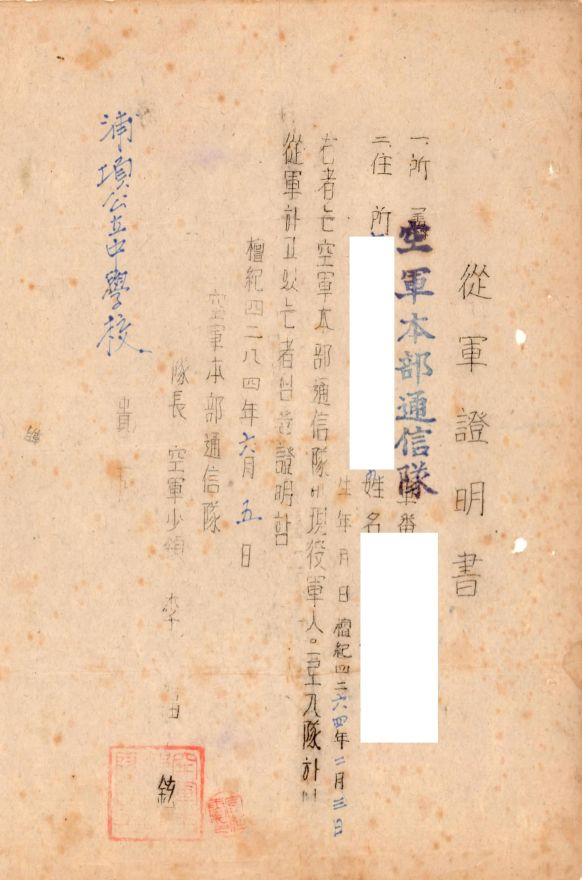 從軍證明書
一、所屬 空軍本部通信隊 軍番
二、住所 姓名
生年月日 檀紀四二六四年二月三日
右者는 空軍本部通信隊에 現役軍人으로 入隊하여
從軍하고 있는 者임을 證明함
檀紀四二八四年六月五日
空軍本部通信隊
隊長 空軍少領 李
浦項公立中學校
貴下